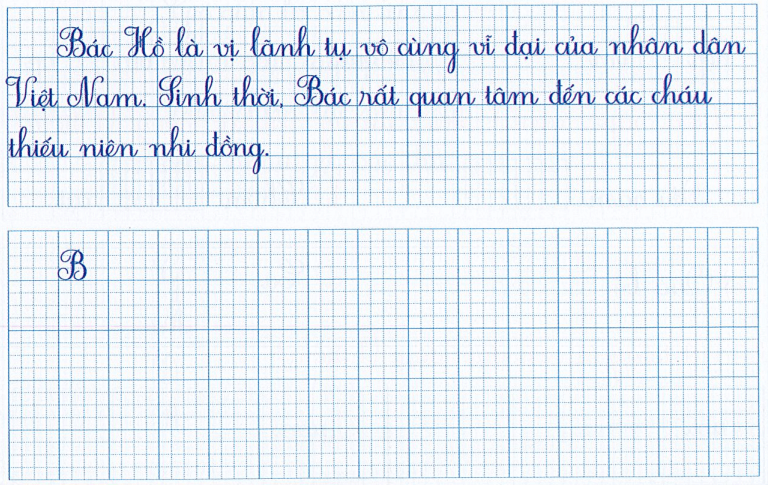 Bác Hồ là vị lãnh tụ vô cùng vĩ đại của nhân dân
Việt Nam. Sinh thời, Bác rất quan tâm đến các cháu
thiếu niên nhi đồng.
B